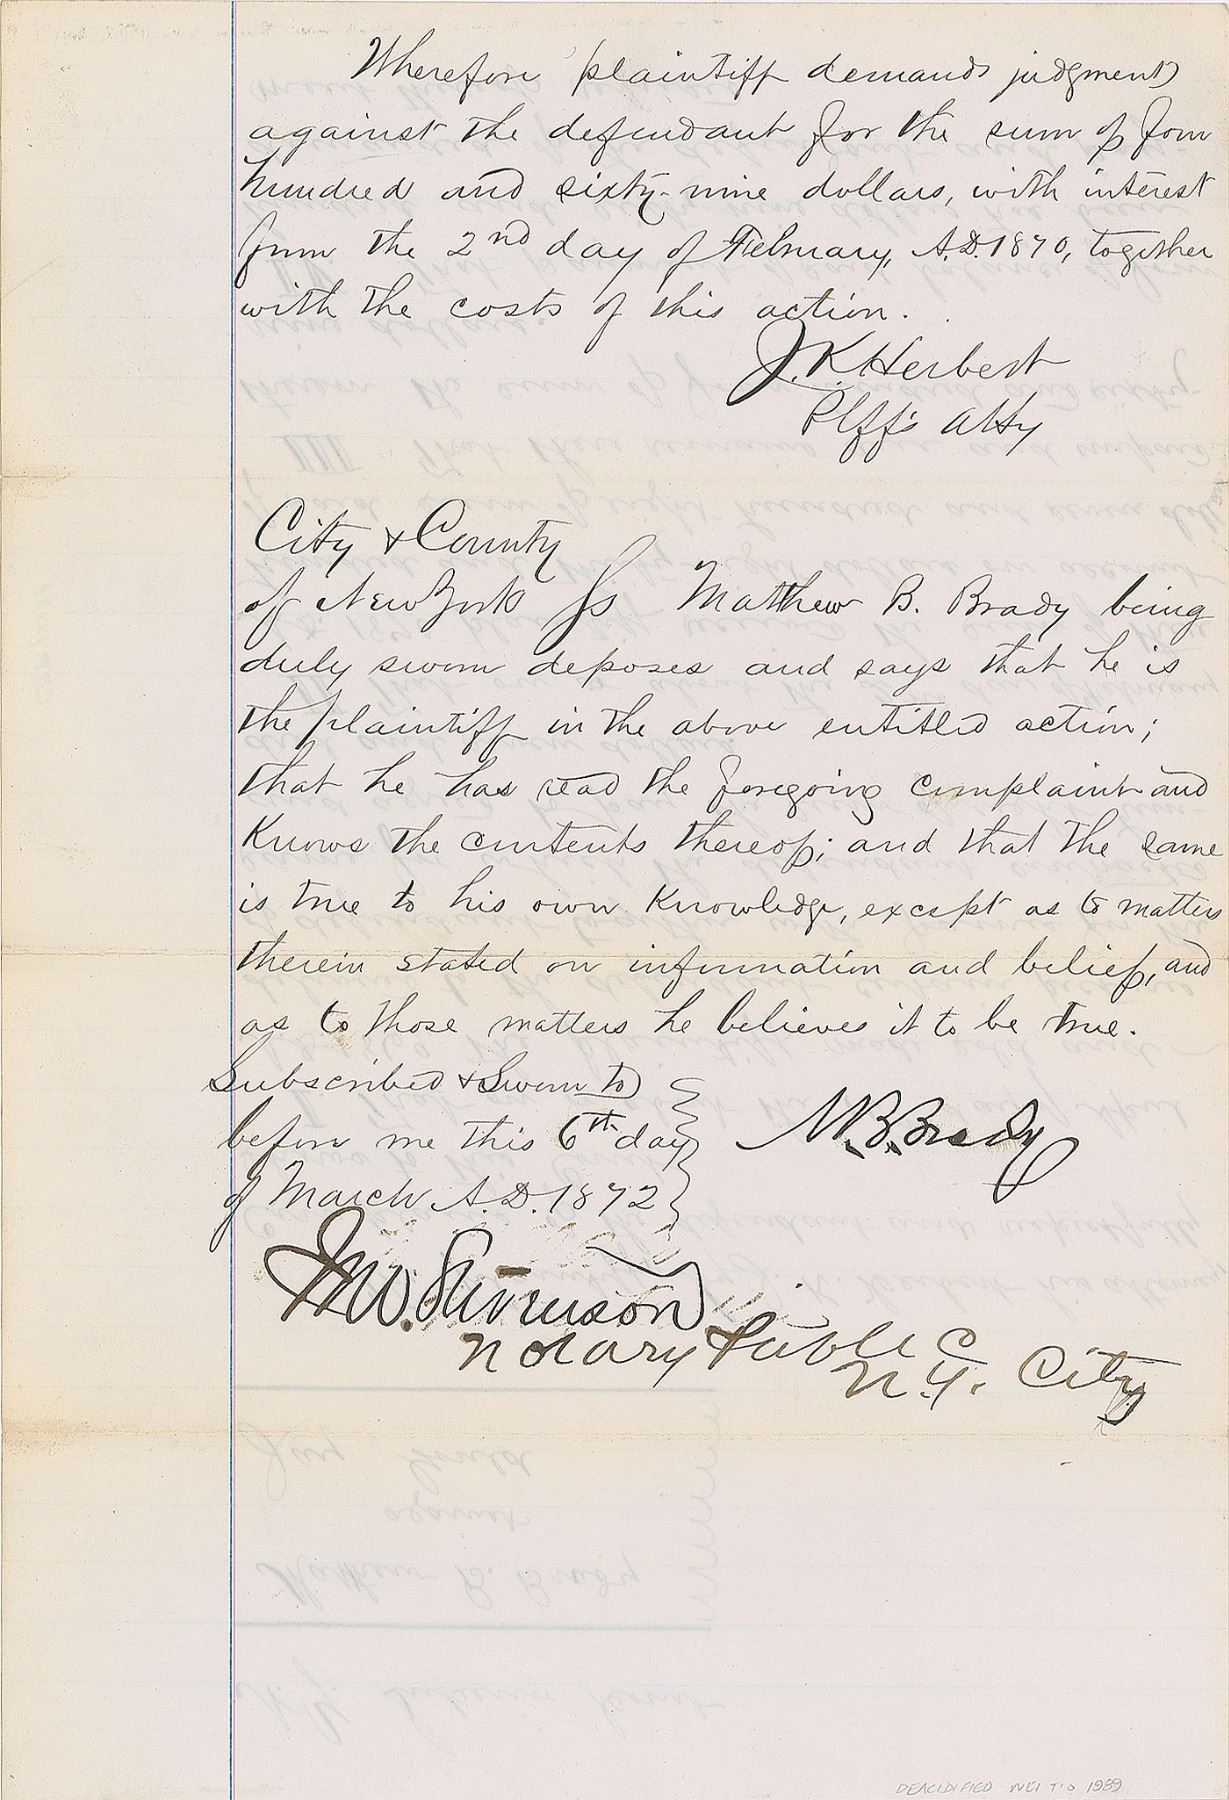 Wherefore plaintiff demands judgment
against the defendant for the sum of four
hundred and sixty-nine dollars, with interest
from the 2nd day of February, A.D. 1870, together
with the costs of this action.
J. K. Herbert
Plff's Atty
City & County
of New York ss Matthew B. Brady being
duly sworn deposes and says that he is
the plaintiff in the above entitled action;
that he has read the foregoing complaint and
knows the contents thereof; and that the same
is true to his own knowledge, except as to matters
therein stated on information and belief, and
as to those matters he believes it to be true.
Subscribed & Sworn to
before me this 6th day
of March A.D. 1872
M. B. Brady
Notary Public
N.Y. City
Jay Gould
against
Matthew B. Brady
DEACIDIFIED 1989